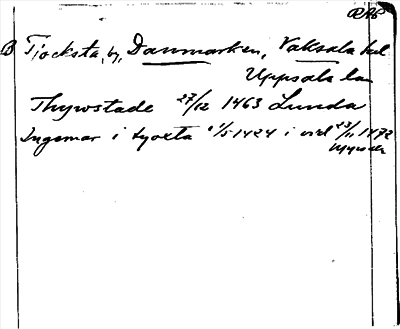 RAP
B Tjocksta, by, Danmarken, Vaksala hd
Uppsala län
Thywstade 27/12 1463 Lunda
Ingemar i tyoxta 1/5 1424 i vid 23/11 1472